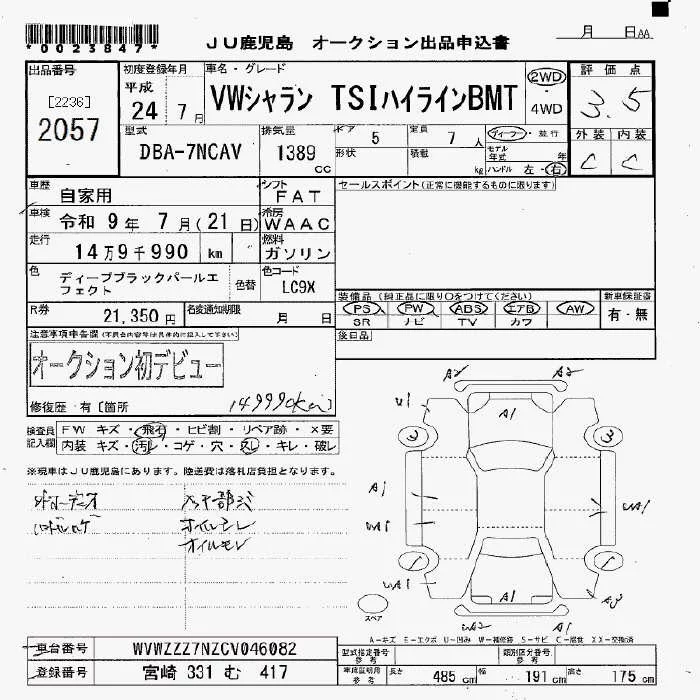 *0023847*
JU鹿児島 オークション出品申込書
月 日AA
出品番号
[2236]
2057
初度登録年月
平成
24 7月
車名・グレード
VWシャラン TSIハイラインBMT
2WD
4WD
評価点
3.5
外装 内装
C C
型式
DBA-7NCAV
排気量
1389
cc
ギア 5
定員 7人
形状
積載 kg
ディーラー・並行
モデル年式 年
ハンドル 左・右
車歴
自家用
シフト
FAT
車検
令和 9年 7月(21日)
冷房
WAAC
走行
14万9千990 km
燃料
ガソリン
色
ディープブラックパールエフェクト
色替
色コード
LC9X
R券
21,350円
名変通知期限
月 日
セールスポイント(正常に機能するものに限ります)
装備品(純正品に限り○をつけてください)
PS PW ABS エアB AW
SR ナビ TV カワ
新車保証書
有・無
後日品
注意事項申告欄(不具合内容等は具体的に記入して下さい)
オークション初デビュー
修復歴 有[箇所
149990km]
検査員記入欄
FW キズ・飛石・ヒビ割・リペア跡・×要
内装 キズ・汚レ・コゲ・穴・スレ・キレ・破レ
※現車はJU鹿児島にあります。陸送費は落札店負担となります。
オイルモレ
A2 A2
U1 A1
3 3
A1
WA1
A1
A3
WA2 A1
スペア
A-キズ E-エクボ U-凹み W-補修跡 S-サビ C-腐食 XX-交換済
車台番号
WVWZZZ7NZCV046082
登録番号
宮崎 331 む 417
型式指定番号
参考
類別区分番号
参考
車庫証明用
参考
長さ 485cm
幅 191cm
高さ 175cm